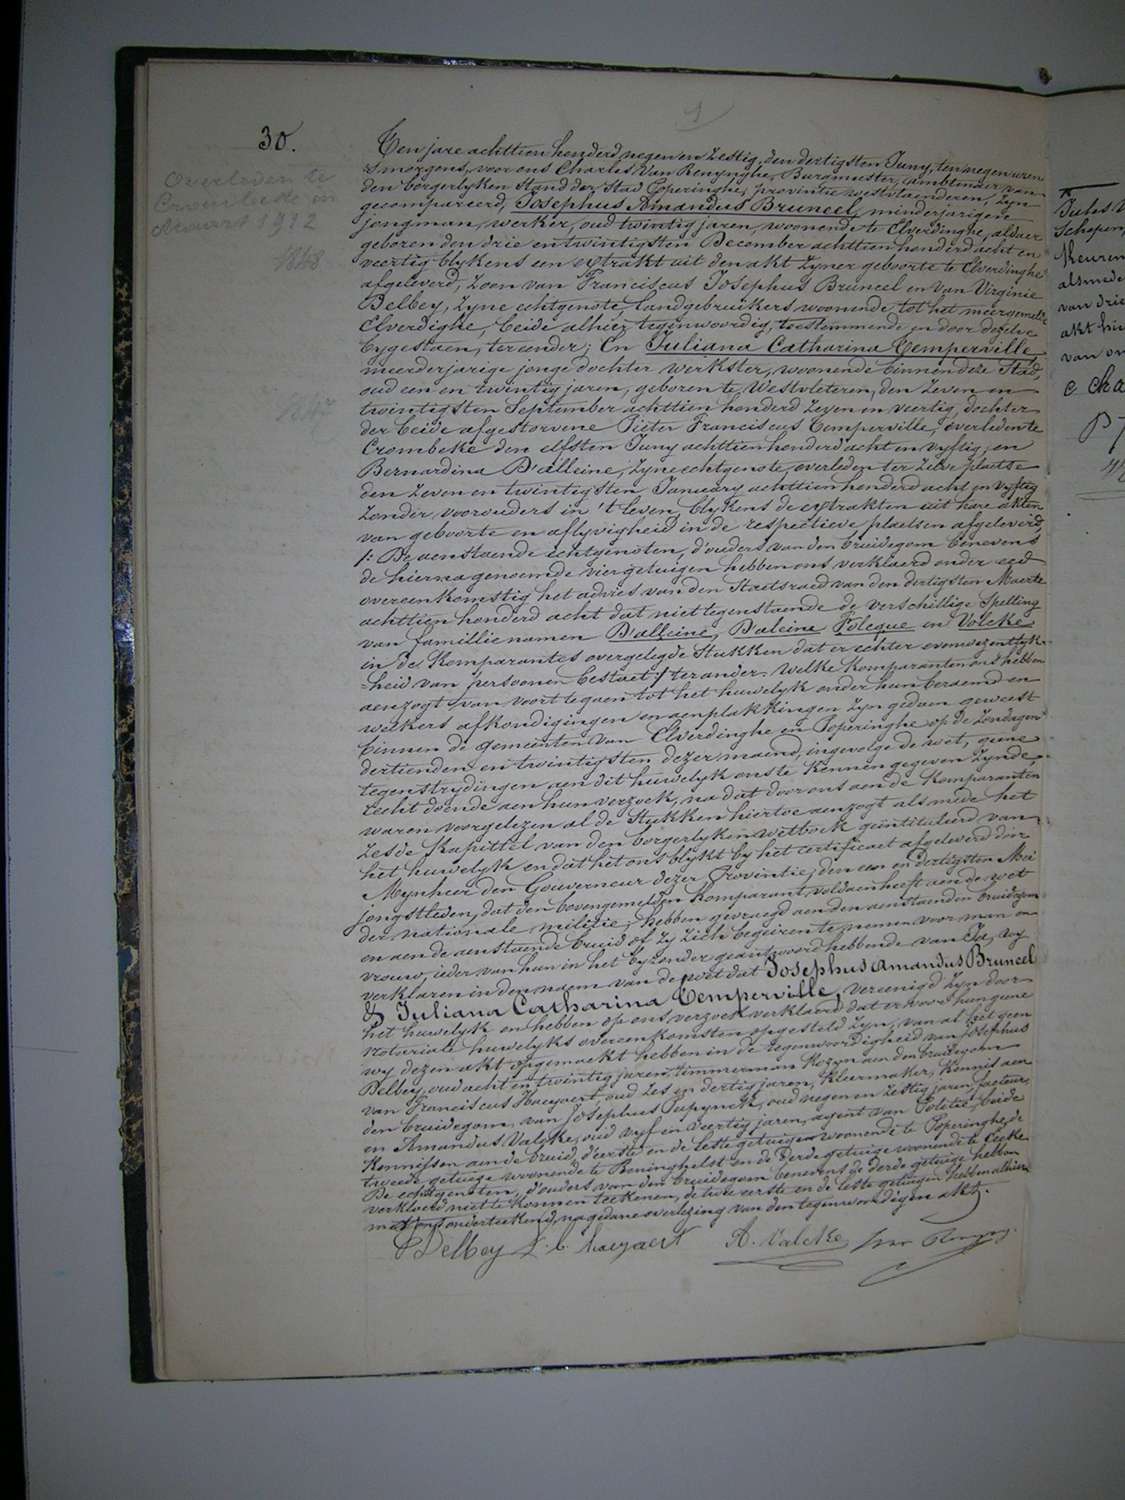 30.
Overleden te
Crombeke in
Maart 1912
1848
1847
Ten jare achttien honderd negen en zestig, den dertigsten Juny, ten negen uren
s'morgens, voor ons Charles Van Renynghe, Burgmeester, ambtenaer van
den borgerlyken Stand der Stad Poperinghe, provintie westvlaanderen, zyn
gecompareerd, Josephus Amandus Bruneel, minderjarigen
jongman, werker, oud twintig jaren, woonende te Elverdinghe, aldaer
geboren den drie en twintigsten December achttien honderd acht en
veertig blykens een extrakt uit den akt zyner geboorte te Elverdinghe
afgeleverd, zoon van Franciscus Josephus Bruneel en van Virginie
Delbey, zyne echtgenote, landgebruikers woonende tot het meergemelde
Elverdighe, beide alhier tegenwoordig, toestemmende en door dezelve
bygestaen, ter eender; En Juliana Catharina Temperville
meerderjarige jonge dochter werkster, woonende binnen deze Stad,
oud een en twintig jaren, geboren te Westvleteren, den zeven en
twintigsten September achttien honderd zeven en veertig, dochter
der beide afgestorvene Pieter Franciscus Temperville, overleden te
Crombeke den elfsten Juny achttien honderd acht en vyftig, en
Bernardina D'alleine, zyne echtgenote, overleden ter zelve plaetse
den zeven en twintigsten January achttien honderd acht en vyftig
zonder voorouders in 't leven, blykens de extrakten uit hare akten
van geboorte en aflyvigheid in de respectieve plaetsen afgeleverd,
/: De aenstaende echtgenoten, d'ouders van den bruidegom benevens
de hierna genoemde vier getuigen hebben ons verklaerd onder eed
overeenkomstig het advies van den Staetsraed van den dertigsten Maerte
achttien honderd acht dat niettegenstaende de verschillige Spelling
van famillie namen D'alleine, D'aleine Foleque en Volcke
in de komparantes overgelegde Stukken dat er echter evenwezentlyk-
-heid van persoonen bestaet :/ ter ander. Welke komparanten ons hebben
aenzogt van voort te gaen tot het huwelyk onder hun beraemd en
welkers afkondigingen en aenplakkingen zyn gedaen geweest
binnen de gemeenten van Elverdinghe en Poperinghe op de zondagen
dertienden en twintigsten dezer maend, ingevolge de wet, geene
tegenstrydingen aen dit huwelyk ons te kennen gegeven zynde,
recht doende aen hun verzoek, na dat door ons aen de komparanten
waren voorgelezen al de Stukken hiertoe aenzogt als mede het
zesde kapittel van den borgerlyken wetboek geïntituleerd van
het huwelyk en dat het ons blykt by het certificaet afgeleverd door
Mynheer den Gouverneur dezer Provintie, den een en dertigsten Mei
jongstleden, dat den bovengemelden komparant voldaen heeft aen de wet
der nationale militie, hebben gevraegd aen den aenstaenden bruidegom
en aen de aenstaende bruid of zy zich begeiren te nemen voor man en
vrouw, ieder van hun in het byzonder geantwoord hebbende van Ja, wy
verklaren in den naem van de wet dat Josephus Amandus Bruneel
& Juliana Catharina Temperville, vereenigd zyn door
het huwelyk en hebben op ons verzoek verklaerd dat er voor hun geene
notariale huwelyks overeenkomsten opgesteld zyn, van al het geen
wy dezen akt opgemaekt hebben in de tegenwoordigheid van Josephus
Delbey, oud acht en twintig jaren, timmerman kozyn aen den bruidegom
van Franciscus Haeyaert, oud zes en dertig jaren, kleermaker, kennis aen
den bruidegom, van Josephus Pupynck, oud negen en zestig jaren, facteur,
en Amandus Valcke, oud vyf en veertig jaren, agent van Politie, beide
kennissen aen de bruid, d'eerste en de leste getuigen woonende te Poperinghe, de
tweede getuige woonende te Reninghelst en de derde getuige woonende te Locke
De echtgenoten, d'ouders van den bruidegom benevens de derde getuige hebben
verklaerd niet te konnen teekenen, de twee eerste en de leste getuigen hebben alhier
met ons onderteekend, na gedane overlezing van den tegenwoordigen akt.
Delbey
haeyaert
A. Valcke
Jules V
Schepen,
Keuren
alsmede
van drie
akt hie
van on
e cha